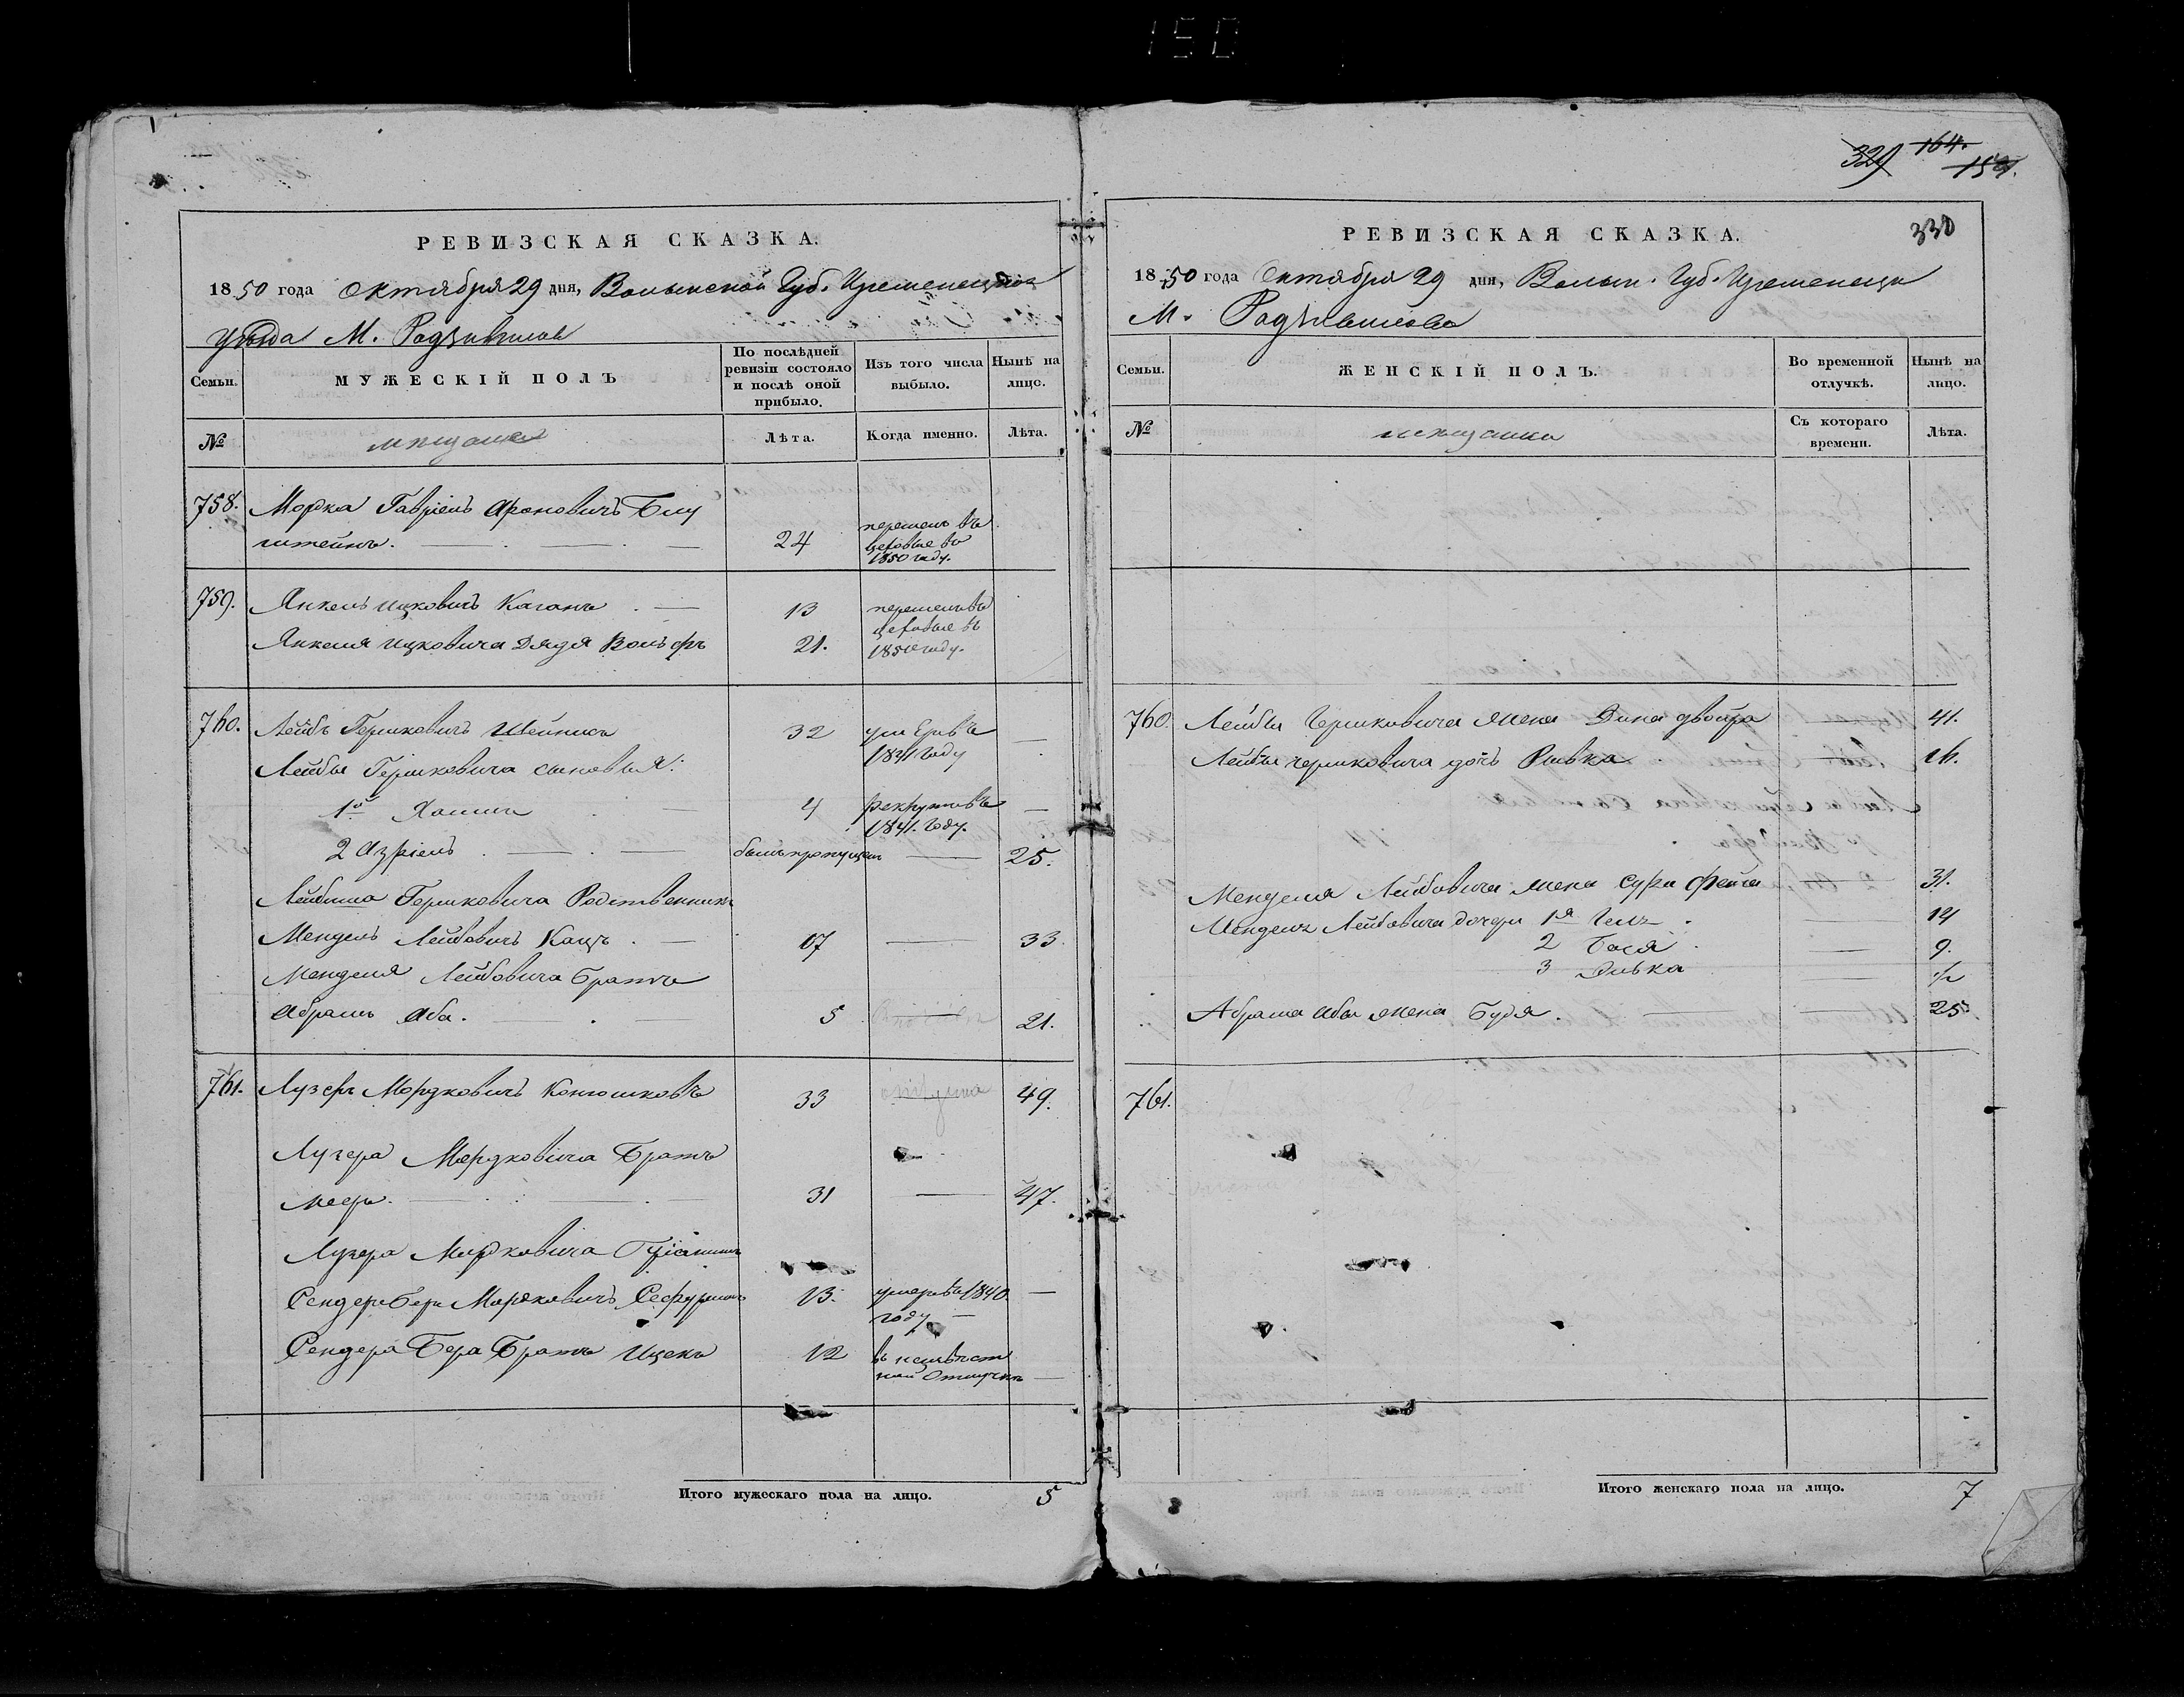 150
329 164. 159.
330
РЕВИЗСКАЯ СКАЗКА.
1850 года Октября 29 дня, Волынской Губ. Кременецкаго
уезда М. Радзивилов
Семьи.
МУЖЕСКІЙ ПОЛЪ
По послѣдней ревизіи состояло и послѣ оной прибыло.
Изъ того числа выбыло.
Нынѣ на лицо.
№
мещане
Лѣта.
Когда именно.
Лѣта.
758. Мордко Гавріель Ароновичъ Блу
штейнъ. 24 перешелъ въ цеховые въ 1850 году.
759. Янкель Ицковичъ Каганъ 13 перешелъ въ
Янкеля Ицковича дядя Вольфъ 21. цеховые въ 1850 году.
760. Лейбъ Гершковичъ 32 умеръ въ 1841 году —
Лейбы Гершковича сыновья:
1й Хаимъ 4 рекрутъ въ 1841 году. —
2 Азріель былъ пропущенъ — 25.
Лейбы Гершковича Родственникъ
Мендель Лейбовичъ Кацъ 17 — 33
Менделя Лейбовича Братъ
Абрамъ Аба. 5 — 21.
761. Лузеръ Мордковичъ Конюшковъ 33 49.
Лузера Мордковича Братъ
Меер. 31 — 47.
Лузера Мордковича
Сендеръ Беръ Мордковичъ 13. умеръ въ 1840 году —
Сендера Бера Братъ Ицекъ 12 въ неизвѣстной отлучкѣ —
Итого мужескаго пола на лицо. 5
РЕВИЗСКАЯ СКАЗКА.
1850 года Октября 29 дня, Волын. Губ. Кременецк
М. Радзивилова
Семьи.
ЖЕНСКІЙ ПОЛЪ.
Во временной отлучкѣ.
Нынѣ на лицо.
№
мещанки
Съ котораго времени.
Лѣта.
760. Лейбы Гершковича жена Дина Двойра — 41.
Лейбы Гершковича дочь Ривка — 16.
Менделя Лейбовича жена Сура Фейга — 31.
Менделя Лейбовича дочери 1я — 14
2 Бася — 9.
3 —
Абрама Абы жена Будя. — 25
761.
Итого женскаго пола на лицо. 7